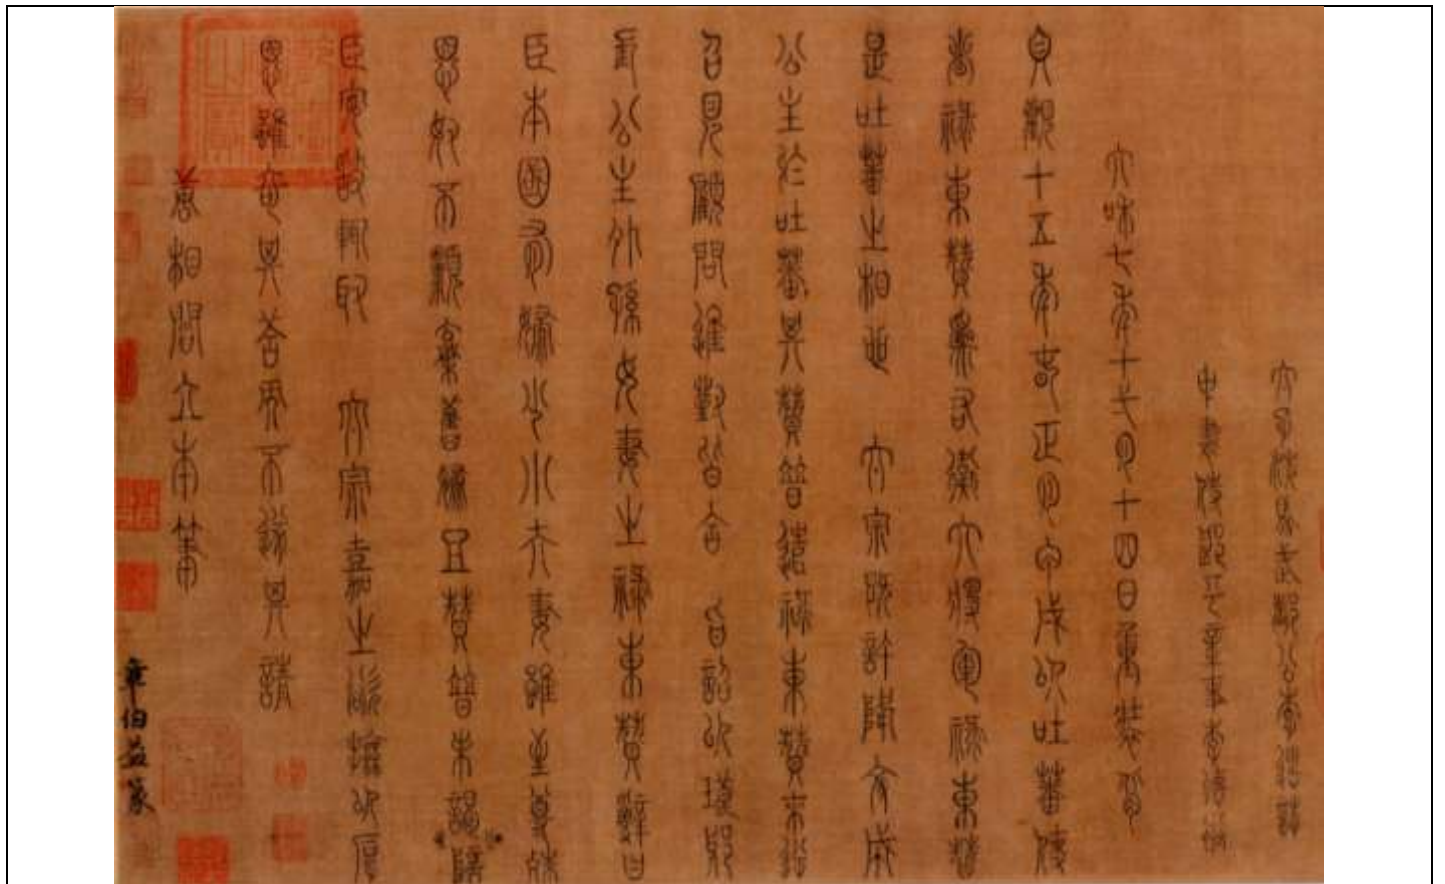 太子洗馬武都公李道誌
中書侍郎平章事李德裕
大和七年十一月十四日重裝背
貞觀十五年春正月甲戌以吐蕃使
者祿東贊為右衛大將軍祿東贊
是吐蕃之相也 太宗既許降文成
公主於吐蕃其贊普遣祿東贊來逆
召見顧問進對皆合 旨詔以瑯邪
長公主外孫女妻之祿東贊辭曰
臣本國有婦少小夫妻雖至尊殊
恩奴不願棄舊婦且贊普未謁
臣安敢輒取 太宗嘉之欲撫以厚
恩雖奇其答而不遂其請
唐相閻立本筆
章伯益篆